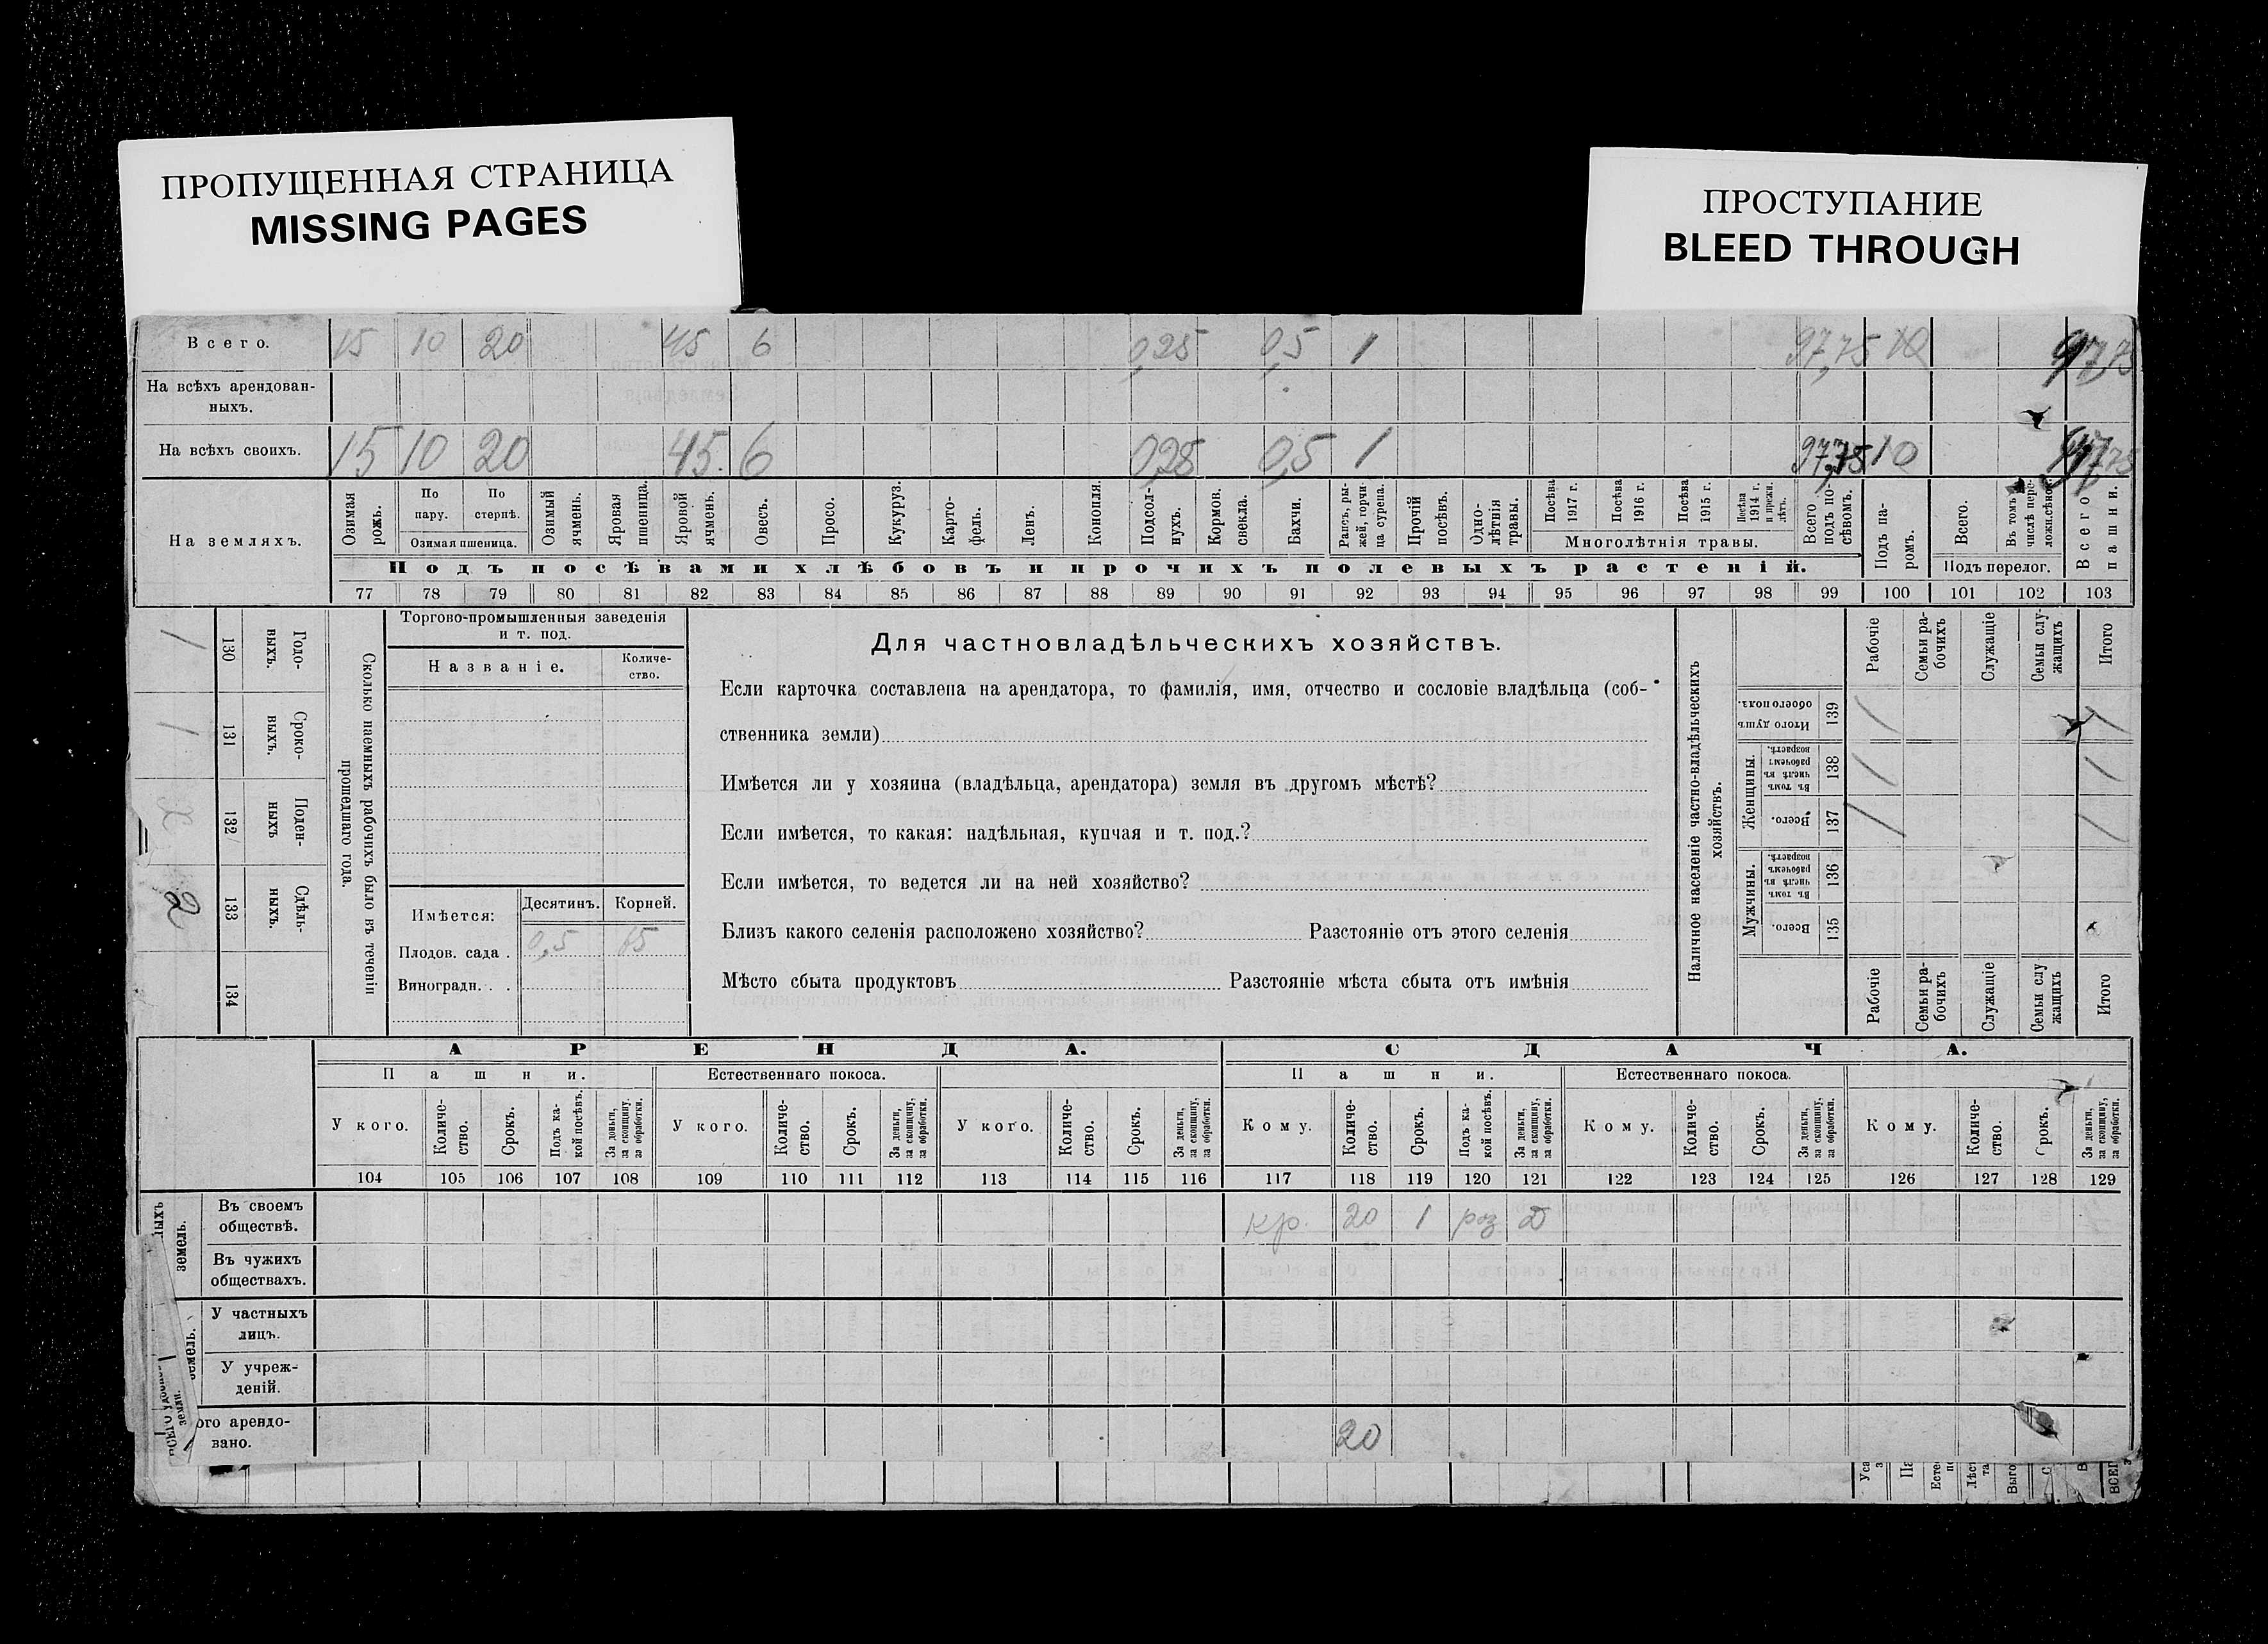 ПРОПУЩЕННАЯ СТРАНИЦА
MISSING PAGES
ПРОСТУПАНИЕ
BLEED THROUGH
Всего. 15 10 20 45 6 0,25 0,5 1 97,75 10 97,75
На всѣхъ арендован-
ныхъ.
На всѣхъ своихъ. 15 10 20 45. 6 0,25 0,5 1 97,75 10
На земляхъ.
Озимая рожь.
По пару.
По стернѣ.
Озимая пшеница.
Озимый ячмень.
Яровая пшеница.
Яровой ячмень.
Овесъ.
Просо.
Кукуруз.
Карто-
фель.
Ленъ.
Конопля.
Подсол-
нухъ.
Кормов. свекла.
Бахчи.
Рапсъ, ры-
жей, горчи-
ца сурепа.
Прочій посѣвъ.
Одно-
лѣтнія травы.
Посѣва 1917 г.
Посѣва 1916 г.
Посѣва 1915 г.
Посѣва 1914 г. и прежн. лѣтъ.
Многолѣтнія травы.
Всего подъ по-
сѣвомъ.
Подъ па-
ромъ.
Всего.
Въ томъ числѣ пере-
ложн.сѣнок.
Подъ перелог.
Всего пашни.
Подъ посѣвами хлѣбовъ и прочихъ полевыхъ растеній.
77 78 79 80 81 82 83 84 85 86 87 88 89 90 91 92 93 94 95 96 97 98 99 100 101 102 103
1 130 Годо-
выхъ.
1 131 Сроко-
выхъ.
132 Поден-
ныхъ
2 133 Сдѣль-
ныхъ.
134
Сколько наемныхъ рабочихъ было въ теченіи
прошедшаго года.
Торгово-промышленныя заведенія
и т. под.
Названіе.
Количе-
ство.
Имѣется:
Десятинъ. Корней.
Плодов. сада . 0,5 15
Виноградн. . .
Для частновладѣльческихъ хозяйствъ.
Если карточка составлена на арендатора, то фамилія, имя, отчество и сословіе владѣльца (соб-
ственника земли)
Имѣется ли у хозяина (владѣльца, арендатора) земля въ другомъ мѣстѣ?
Если имѣется, то какая: надѣльная, купчая и т. под.?
Если имѣется, то ведется ли на ней хозяйство?
Близъ какого селенія расположено хозяйство? Разстояніе отъ этого селенія
Мѣсто сбыта продуктовъ Разстояніе мѣста сбыта отъ имѣнія
Наличное населеніе частно-владѣльческихъ
хозяйствъ.
Рабочіе
Семьи ра-
бочихъ
Служащіе
Семьи слу-
жащихъ
Итого
Итого душъ обоего пола. 139 1 1
Женщины.
Въ томъ числѣ въ рабочемъ возрастѣ. 138 1 1
Всего. 137 1 1
Мужчины.
Въ томъ числѣ въ рабочемъ возрастѣ. 136
Всего. 135
Рабочіе
Семьи ра-
бочихъ
Служащіе
Семьи слу
жащихъ
Итого
АРЕНДА. СДАЧА.
Пашни. Естественнаго покоса. Пашни. Естественнаго покоса.
У кого.
Количе-
ство.
Срокъ.
Подъ ка-
кой посѣвъ.
За деньги, за скопщину, за обработки.
У кого.
Количе-
ство.
Срокъ.
За деньги, за скопщину, за обработки.
У кого.
Количе-
ство.
Срокъ.
За деньги, за скопщину, за обработки.
Кому.
Количе-
ство.
Срокъ.
Подъ ка-
кой посѣвъ.
За деньги, за скопщину, за обработки.
Кому.
Количе-
ство.
Срокъ.
За деньги, за скопщину, за обработки.
Кому.
Количе-
ство.
Срокъ.
За деньги, за скопщину, за обработки.
104 105 106 107 108 109 110 111 112 113 114 115 116 117 118 119 120 121 122 123 124 125 126 127 128 129
ныхъ земель.
Въ своемъ
обществѣ. кр. 20 1 роз Д
Въ чужихъ
обществахъ.
У частныхъ
лицъ.
У учреж-
деній.
ого арендо-
вано. 20